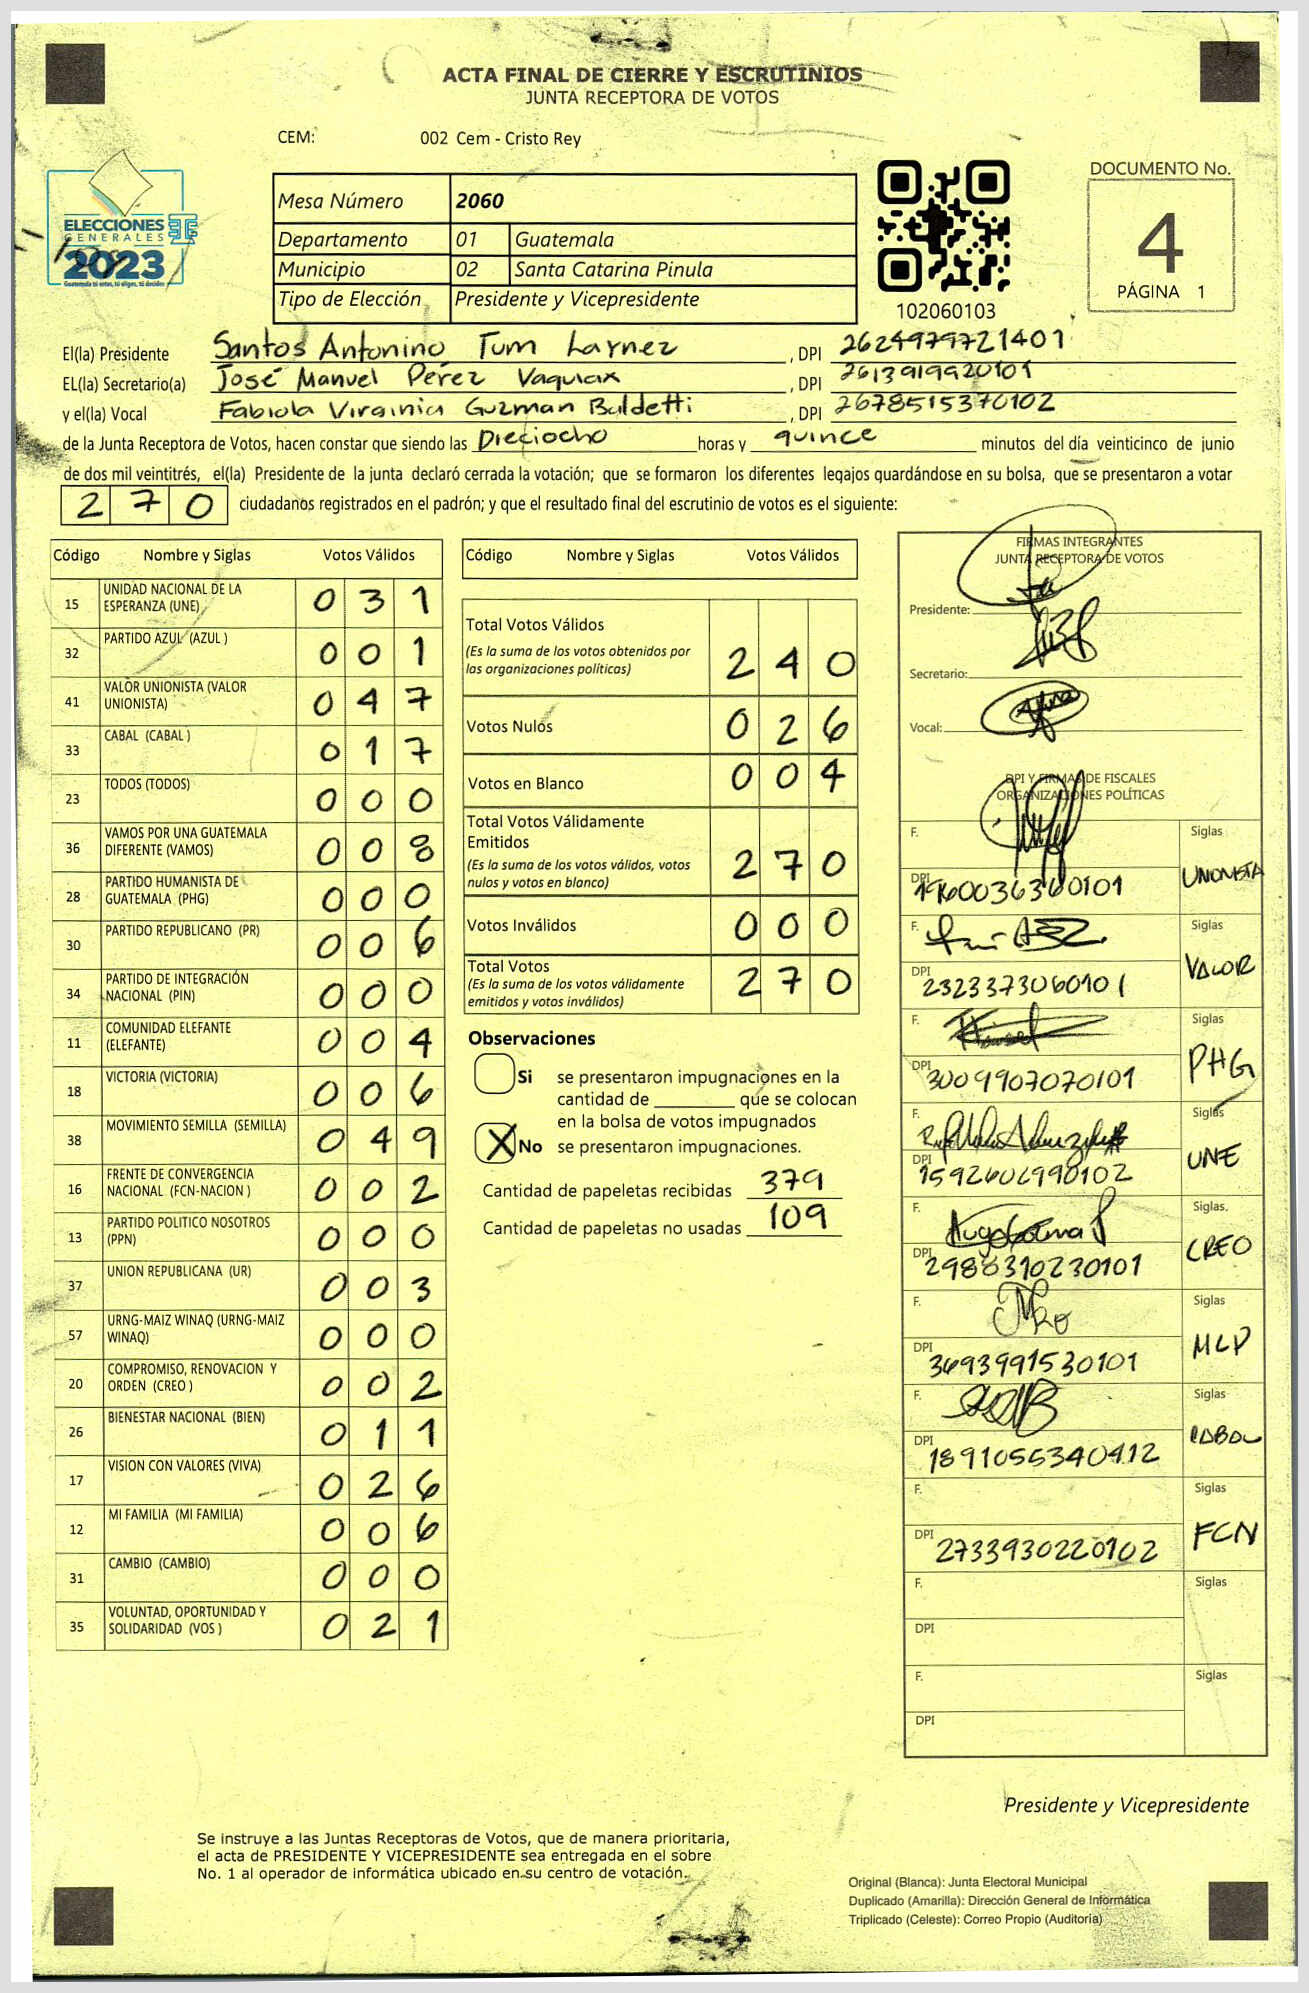 ACTA FINAL DE CIERRE Y ESCRUTINIOS
JUNTA RECEPTORA DE VOTOS
CEM: 002 Cem - Cristo Rey
ELECCIONES
GENERALES
2023
Guatemala tú votas, tú eliges, tú decides
Mesa Número 2060
Departamento 01 Guatemala
Municipio 02 Santa Catarina Pinula
Tipo de Elección Presidente y Vicepresidente
102060103
DOCUMENTO No.
4
PÁGINA 1
El(la) Presidente Santos Antonino Tum Laynez , DPI 2624979721401
EL(la) Secretario(a) José Manuel Pérez Vaquiax , DPI 2613919920101
y el(la) Vocal Fabiola Virginia Guzman Baldetti , DPI 2678515370102
de la Junta Receptora de Votos, hacen constar que siendo las Dieciocho horas y quince minutos del día veinticinco de junio
de dos mil veintitrés, el(la) Presidente de la junta declaró cerrada la votación; que se formaron los diferentes legajos guardándose en su bolsa, que se presentaron a votar
270 ciudadanos registrados en el padrón; y que el resultado final del escrutinio de votos es el siguiente:
Código Nombre y Siglas Votos Válidos
15 UNIDAD NACIONAL DE LA ESPERANZA (UNE) 031
32 PARTIDO AZUL (AZUL ) 001
41 VALOR UNIONISTA (VALOR UNIONISTA) 047
33 CABAL (CABAL ) 017
23 TODOS (TODOS) 000
36 VAMOS POR UNA GUATEMALA DIFERENTE (VAMOS) 008
28 PARTIDO HUMANISTA DE GUATEMALA (PHG) 000
30 PARTIDO REPUBLICANO (PR) 006
34 PARTIDO DE INTEGRACIÓN NACIONAL (PIN) 000
11 COMUNIDAD ELEFANTE (ELEFANTE) 004
18 VICTORIA (VICTORIA) 006
38 MOVIMIENTO SEMILLA (SEMILLA) 049
16 FRENTE DE CONVERGENCIA NACIONAL (FCN-NACION ) 002
13 PARTIDO POLITICO NOSOTROS (PPN) 000
37 UNION REPUBLICANA (UR) 003
57 URNG-MAIZ WINAQ (URNG-MAIZ WINAQ) 000
20 COMPROMISO, RENOVACION Y ORDEN (CREO ) 002
26 BIENESTAR NACIONAL (BIEN) 011
17 VISION CON VALORES (VIVA) 026
12 MI FAMILIA (MI FAMILIA) 006
31 CAMBIO (CAMBIO) 000
35 VOLUNTAD, OPORTUNIDAD Y SOLIDARIDAD (VOS ) 021
Código Nombre y Siglas Votos Válidos
Total Votos Válidos 240
(Es la suma de los votos obtenidos por
las organizaciones políticas)
Votos Nulos 026
Votos en Blanco 004
Total Votos Válidamente
Emitidos 270
(Es la suma de los votos válidos, votos
nulos y votos en blanco)
Votos Inválidos 000
Total Votos 270
(Es la suma de los votos válidamente
emitidos y votos inválidos)
Observaciones
Si se presentaron impugnaciones en la
cantidad de ________ que se colocan
en la bolsa de votos impugnados
X No se presentaron impugnaciones.
Cantidad de papeletas recibidas 379
Cantidad de papeletas no usadas 109
FIRMAS INTEGRANTES
JUNTA RECEPTORA DE VOTOS
Presidente:
Secretario:
Vocal:
DPI Y FIRMAS DE FISCALES
ORGANIZACIONES POLÍTICAS
F. Siglas UNIONISTA
DPI 1960036360101
F. Siglas VALOR
DPI 2323373060101
F. Siglas PHG
DPI 3009907070101
F. Siglas UNE
DPI 1592606990102
F. Siglas. CREO
DPI 2988310230101
F. Siglas MLP
DPI 3693991530101
F. Siglas CABAL
DPI 1891055340412
F. Siglas FCN
DPI 2733930220102
F. Siglas
DPI
F. Siglas
DPI
Presidente y Vicepresidente
Se instruye a las Juntas Receptoras de Votos, que de manera prioritaria,
el acta de PRESIDENTE Y VICEPRESIDENTE sea entregada en el sobre
No. 1 al operador de informática ubicado en su centro de votación.
Original (Blanca): Junta Electoral Municipal
Duplicado (Amarilla): Dirección General de Informática
Triplicado (Celeste): Correo Propio (Auditoria)